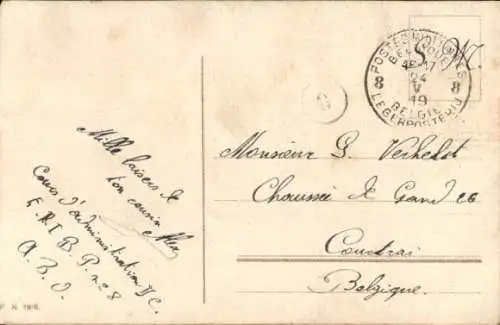 POSTES MILITAIRES
BELGIQUE
16-17
24
V
19
8 8
BELGIE
LEGERPOSTERIJ
S. M.
Mille baisers de
ton cousin
Cours d'administration
B. P. n° 8
A. B. O.
Monsieur G. Verhelst
Chaussée de Gand 26
Courtrai
Belgique.